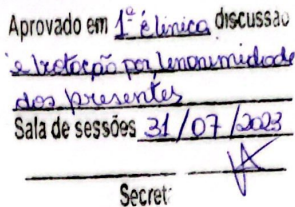 Aprovado em 1ª e única discussão
e votação por unanimidade
dos presentes
Sala de sessões 31/07/2023
Secret.